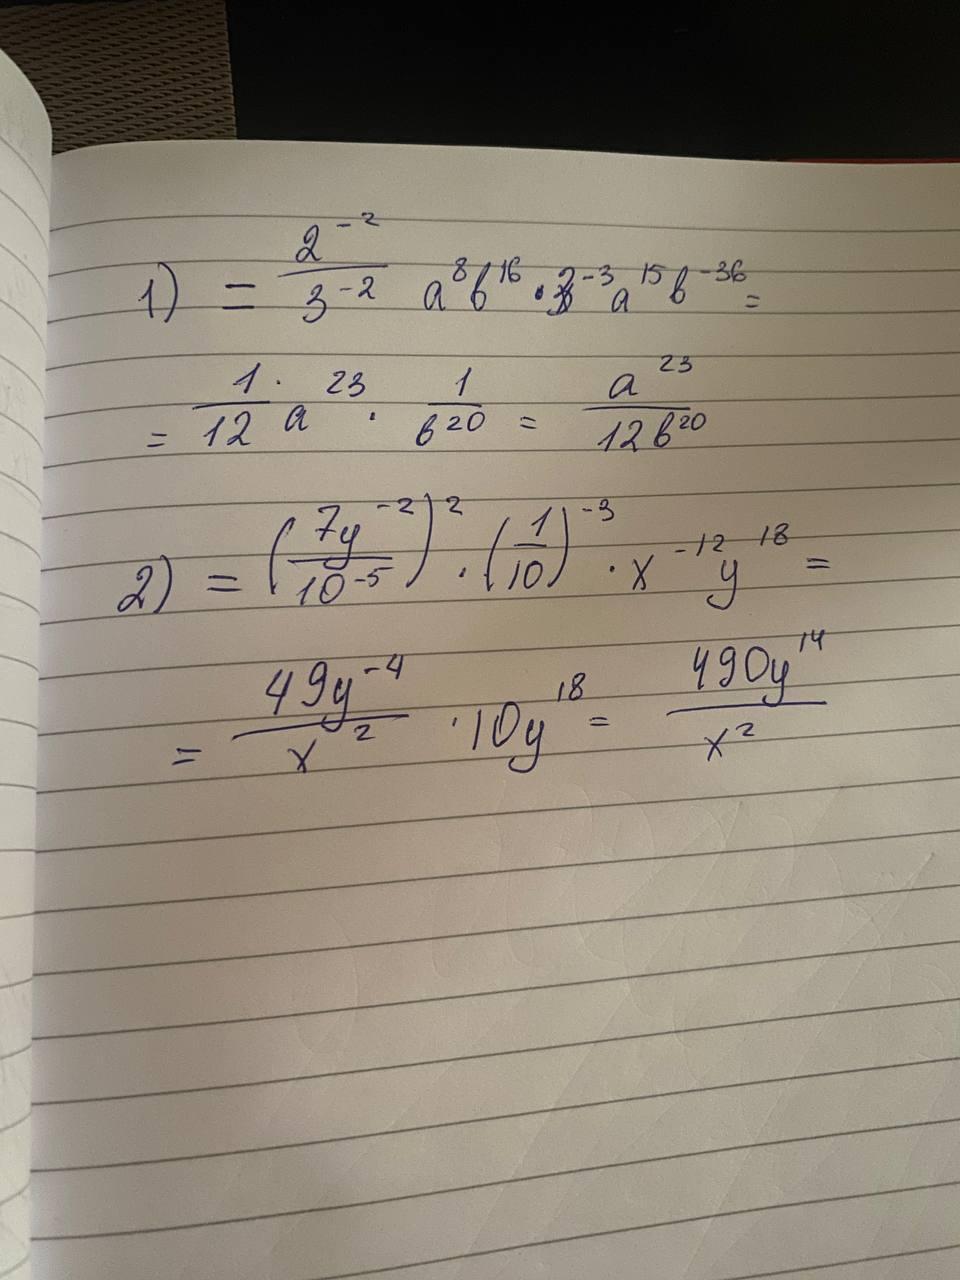 1) = 2⁻²/3⁻² a⁸b¹⁶ · 3⁻³a¹⁵b⁻³⁶ =
= 1/12 · a²³ · 1/b²⁰ = a²³/12b²⁰
2) = (7y⁻²/10⁻⁵)² · (1/10)⁻³ · x⁻¹²y¹⁸ =
= 49y⁻⁴/x² · 10y¹⁸ = 490y¹⁴/x²